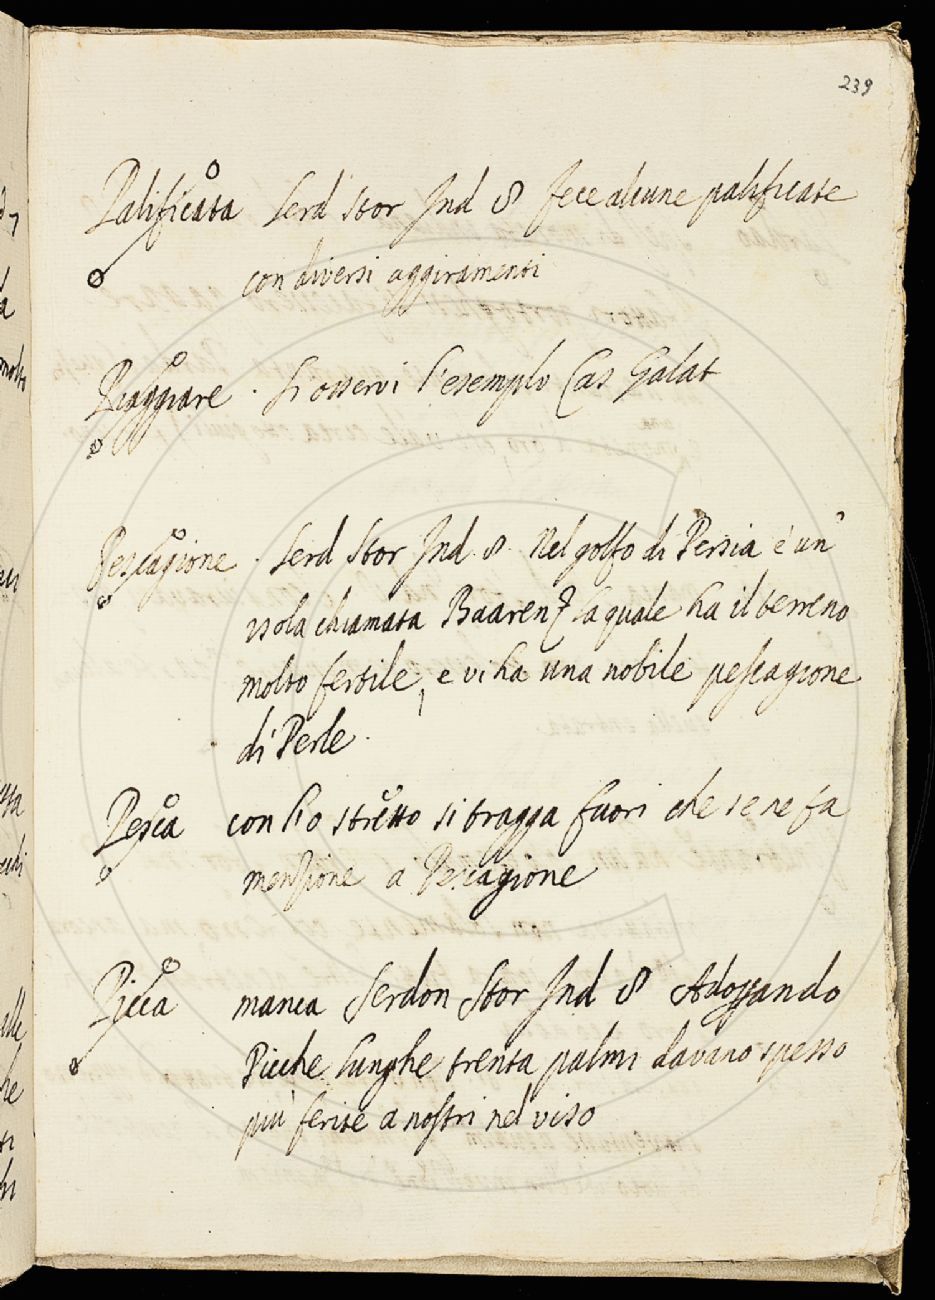 239
Palificata Serd Stor Ind 8 fece alcune palificate
con diversi aggiramenti
Piaggiare . Si osservi l'esemplo Cas Galat
Pescagione . Serd Stor Ind. 8. Nel golfo di Persia è un
isola chiamata Baaren, la quale ha il terreno
molto fertile, e vi ha una nobile pescagione
di Perle.
Pesca con l'o stretto si tragga fuori che se ne fa
menzione a Pescagione
Picca manca Serdon Stor Ind 8 Adoprando
Picche lunghe trenta palmi davano spesso
più ferite a nostri nel viso